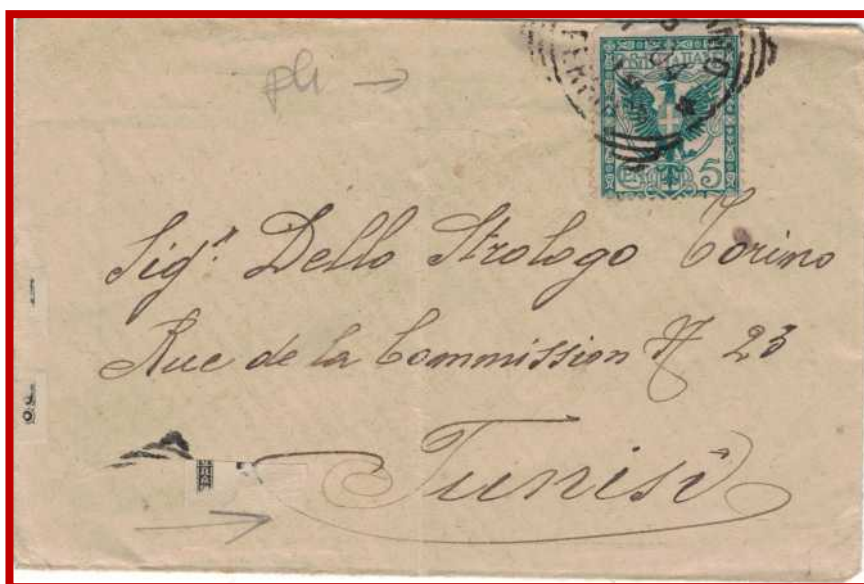 ph →
POSTE ITALIANE
CEN. 5
Sigr. Dello Strologo Torino
Rue de la Commission N 23
Tunisi